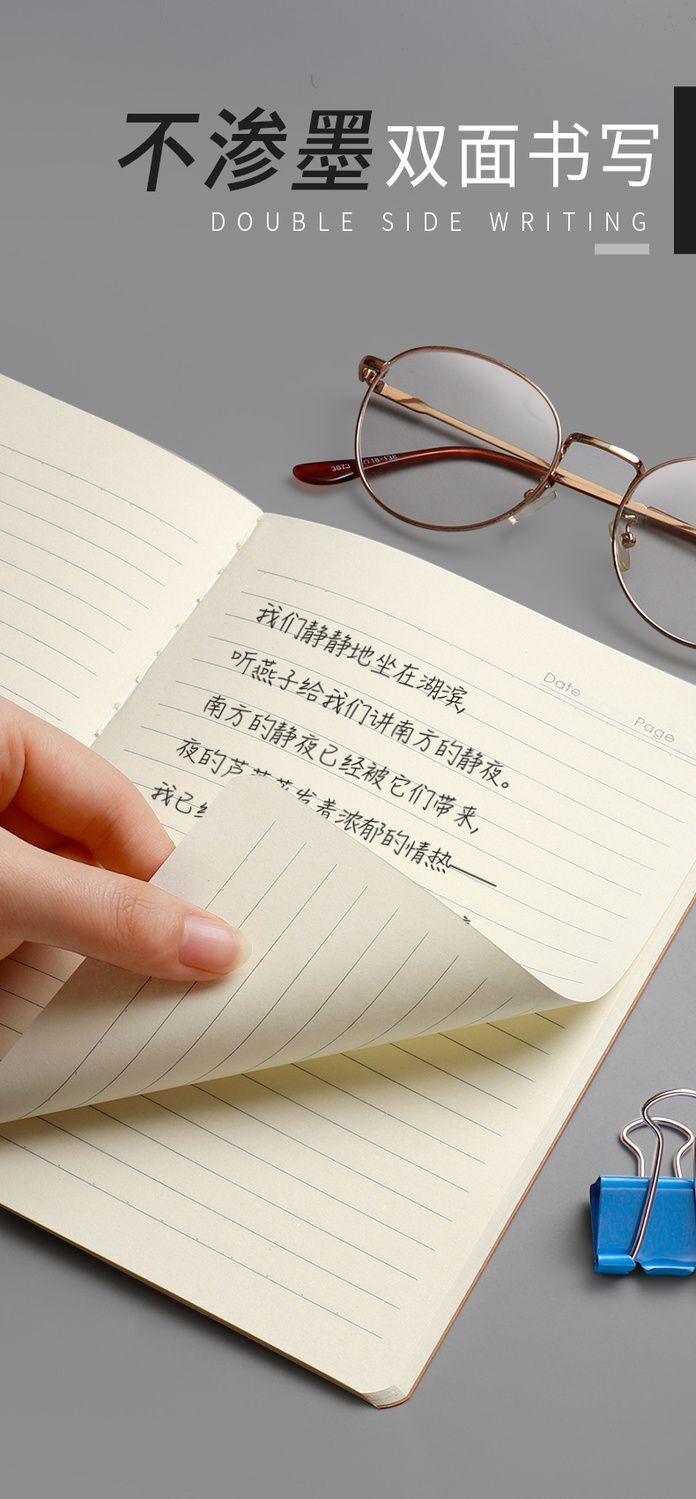 不渗墨双面书写
DOUBLE SIDE WRITING
3073 18-138
Date
Page
我们静静地坐在湖滨,
听燕子给我们讲南方的静夜。
南方的静夜已经被它们带来,
夜的芦 发着浓郁的情热——
我已